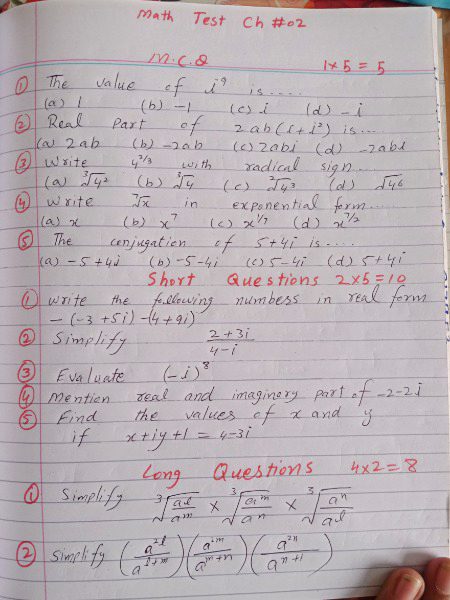 Math Test Ch #02
M.C.Q 1×5=5
① The value of i⁹ is .....
(a) 1 (b) -1 (c) i (d) -i
② Real Part of 2ab(i+i²) is ...
(a) 2ab (b) -2ab (c) 2abi (d) -2abi
③ Write 4^2/3 with radical sign...
(a) ³√4² (b) ³√4 (c) ²√4³ (d) √4⁶
④ Write ⁷√x in exponential form...
(a) x (b) x⁷ (c) x^1/7 (d) x^7/2
⑤ The conjugation of 5+4i is ....
(a) -5+4i (b) -5-4i (c) 5-4i (d) 5+4i
Short Questions 2×5=10
① Write the following numbers in real form
-(-3+5i)-(4+9i)
② Simplify (2+3i)/(4-i)
③ Evaluate (-i)⁸
④ Mention real and imaginery part of -2-2i
⑤ Find the values of x and y
if x+iy+1=4-3i
Long Questions 4×2=8
① Simplify ³√(a^l/a^m) × ³√(a^m/a^n) × ³√(a^n/a^l)
② Simplify (a^2l/a^l+m)(a^2m/a^m+n)(a^2n/a^n+l)